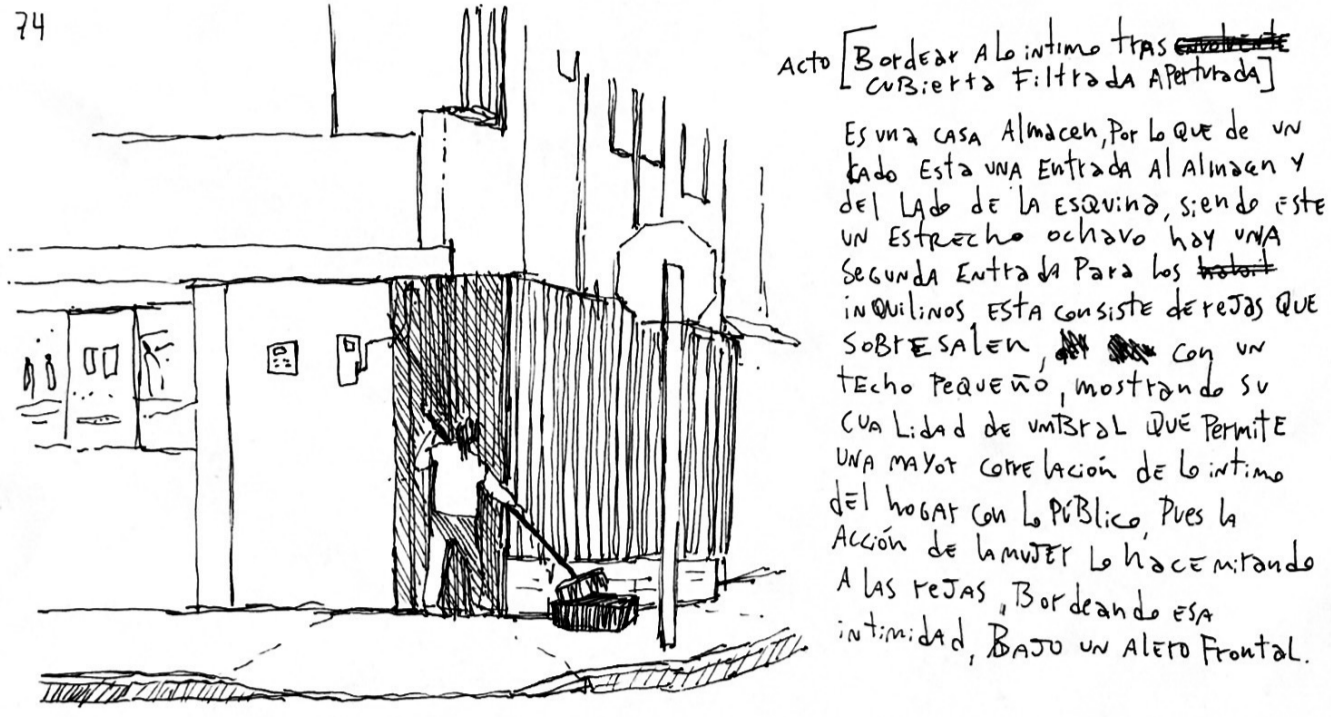 74
Acto [Bordear A lo intimo tras envolvente
cubierta Filtrada Aperturada]
Es una casa Almacen, Por lo Que de un
lado Esta una Entrada Al Almacen y
del lado de la Esquina, siendo este
un Estrecho ochavo hay una
Segunda Entrada Para los
inquilinos, Esta consiste de rejas Que
sobresalen, con un
techo Pequeño, mostrando su
cualidad de umbral Que Permite
una mayor correlación de lo intimo
del hogar con lo Público, Pues la
Acción de la mujer lo hace mirando
A las rejas, Bordeando esa
intimidad, Bajo un Alero Frontal.